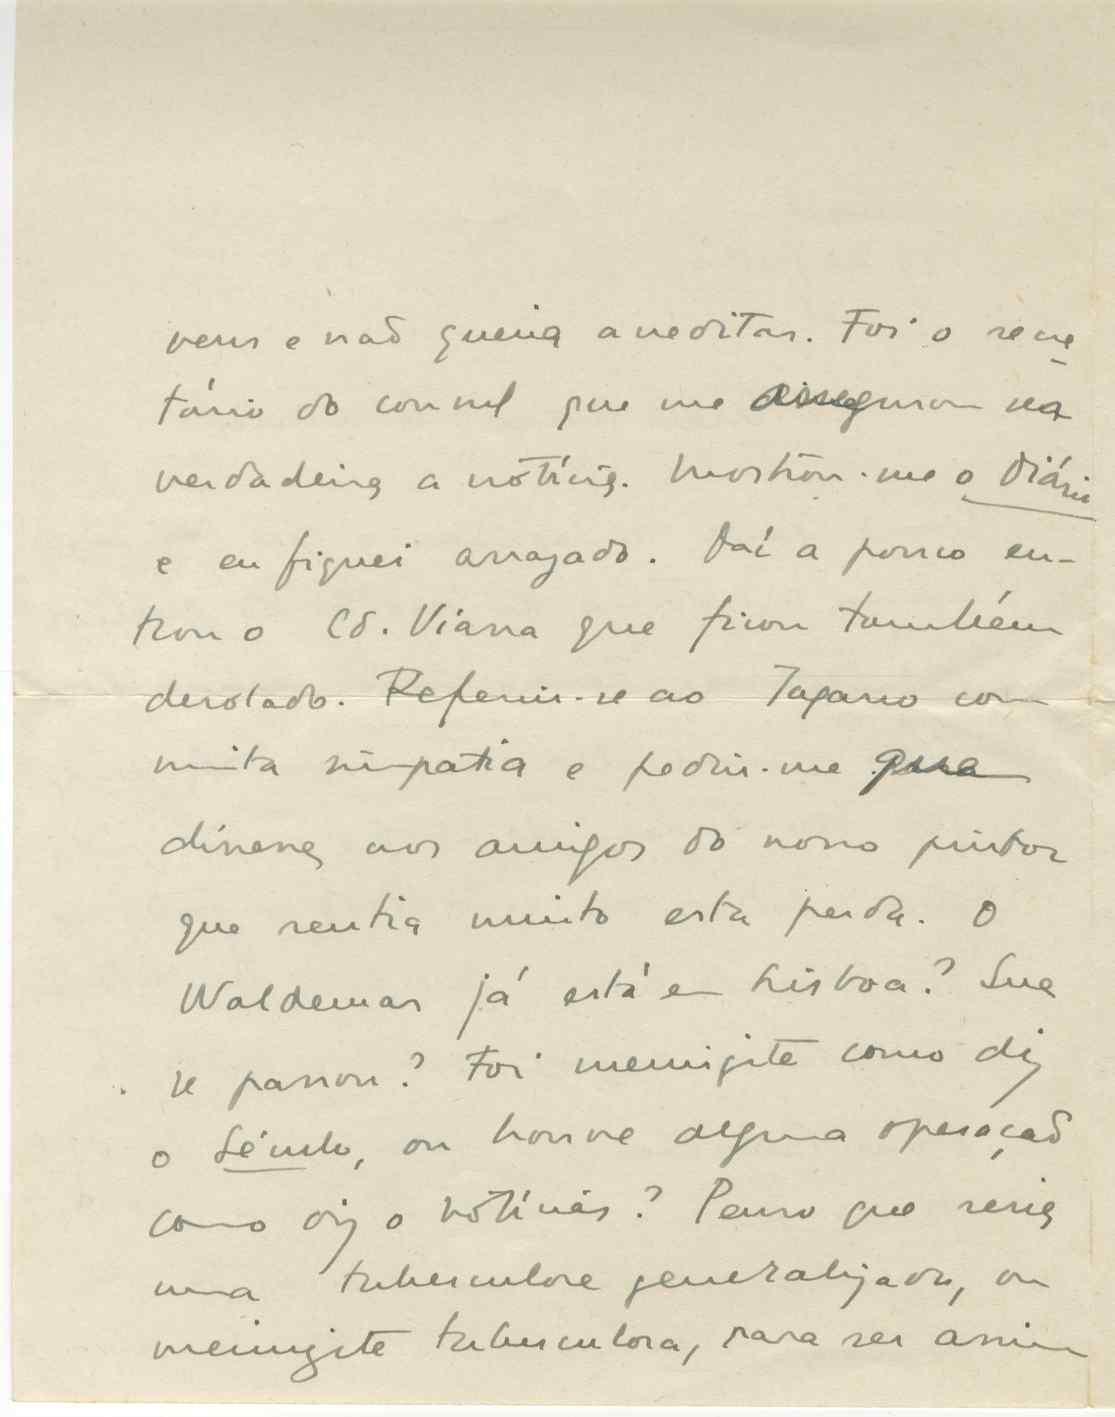 vens e não queria acreditar. Foi o secre
tário do consul que me assegurou ser
verdadeira a nótícia. Mostrou-me o Diário
e eu fiquei arrazado. Daí a pouco en-
trou o Cd. Viana que ficou também
desolado. Referiu-se ao Tagarro com
muita simpatia e pediu-me para
dizer aos amigos do nosso pintor
que sentia muito esta perda. O
Waldemar já está em Lisboa? Que
se passou? Foi meningite como diz
o Século, ou houve alguma operação
como diz o Nótícias? Penso que seria
uma tuberculose generalizada, ou
meningite tuberculosa, para ser assim